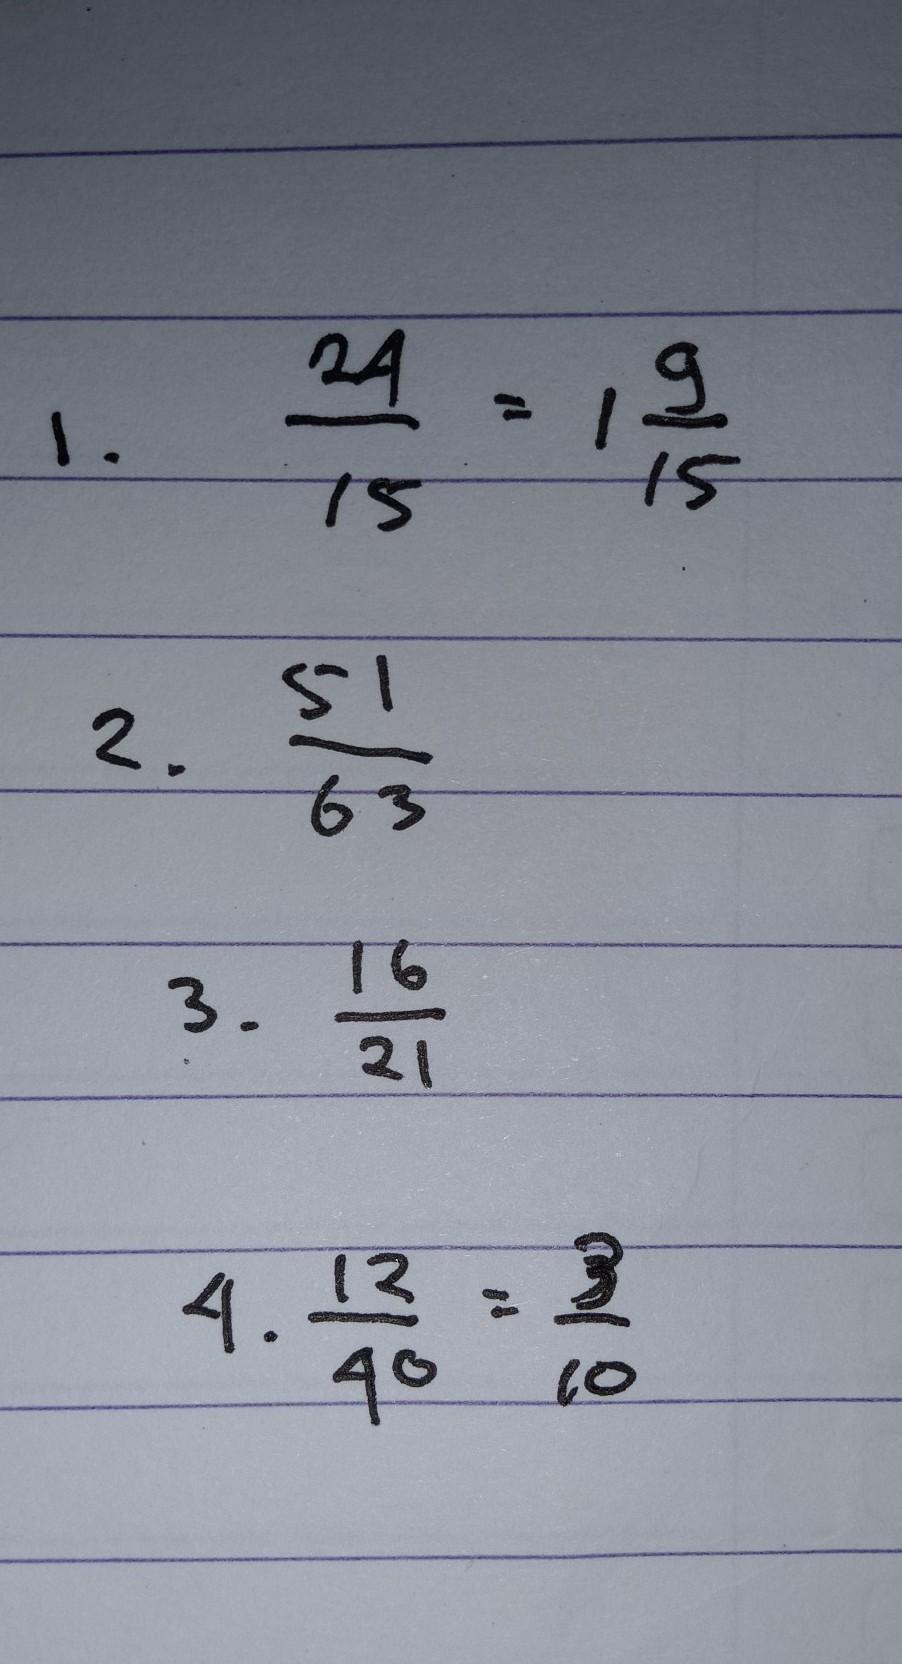 1. 24/15 = 1 9/15
2. 51/63
3. 16/21
4. 12/40 = 3/10